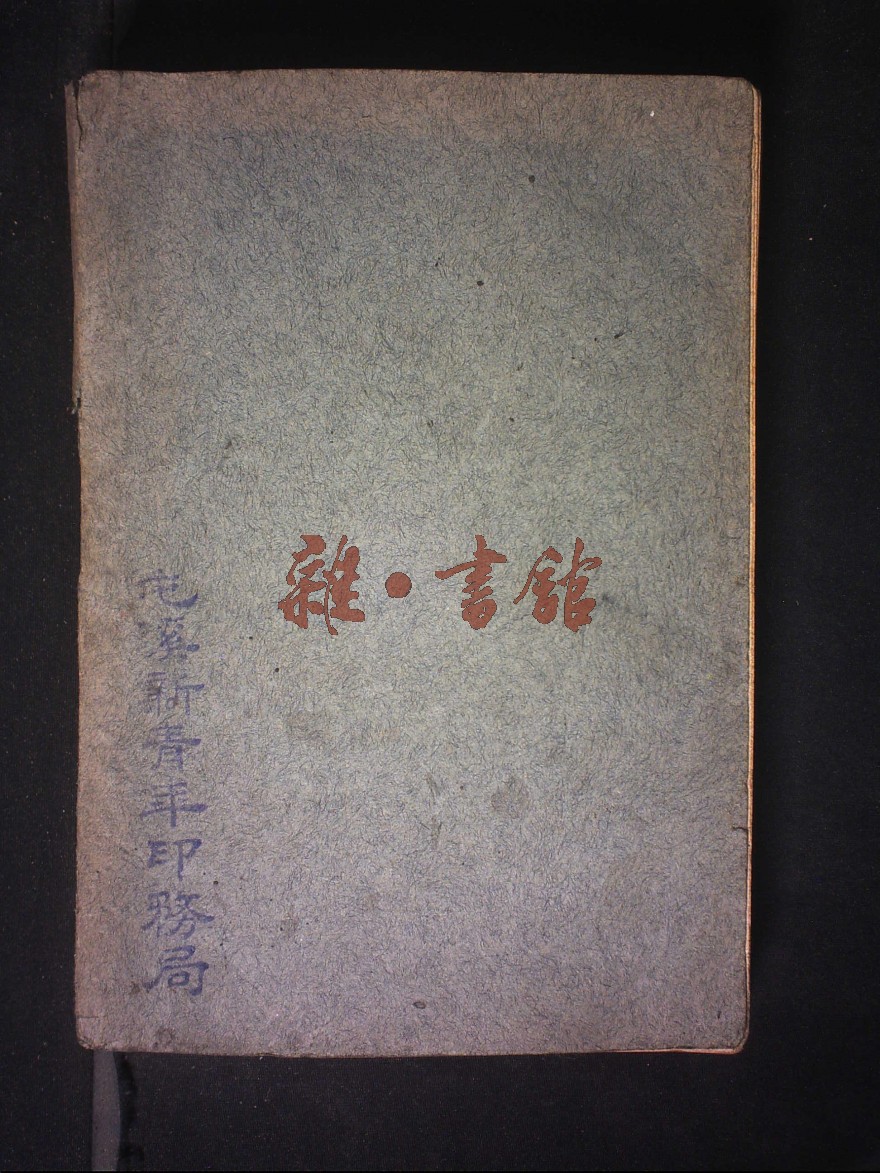 雜·書館
屯溪新青年印務局